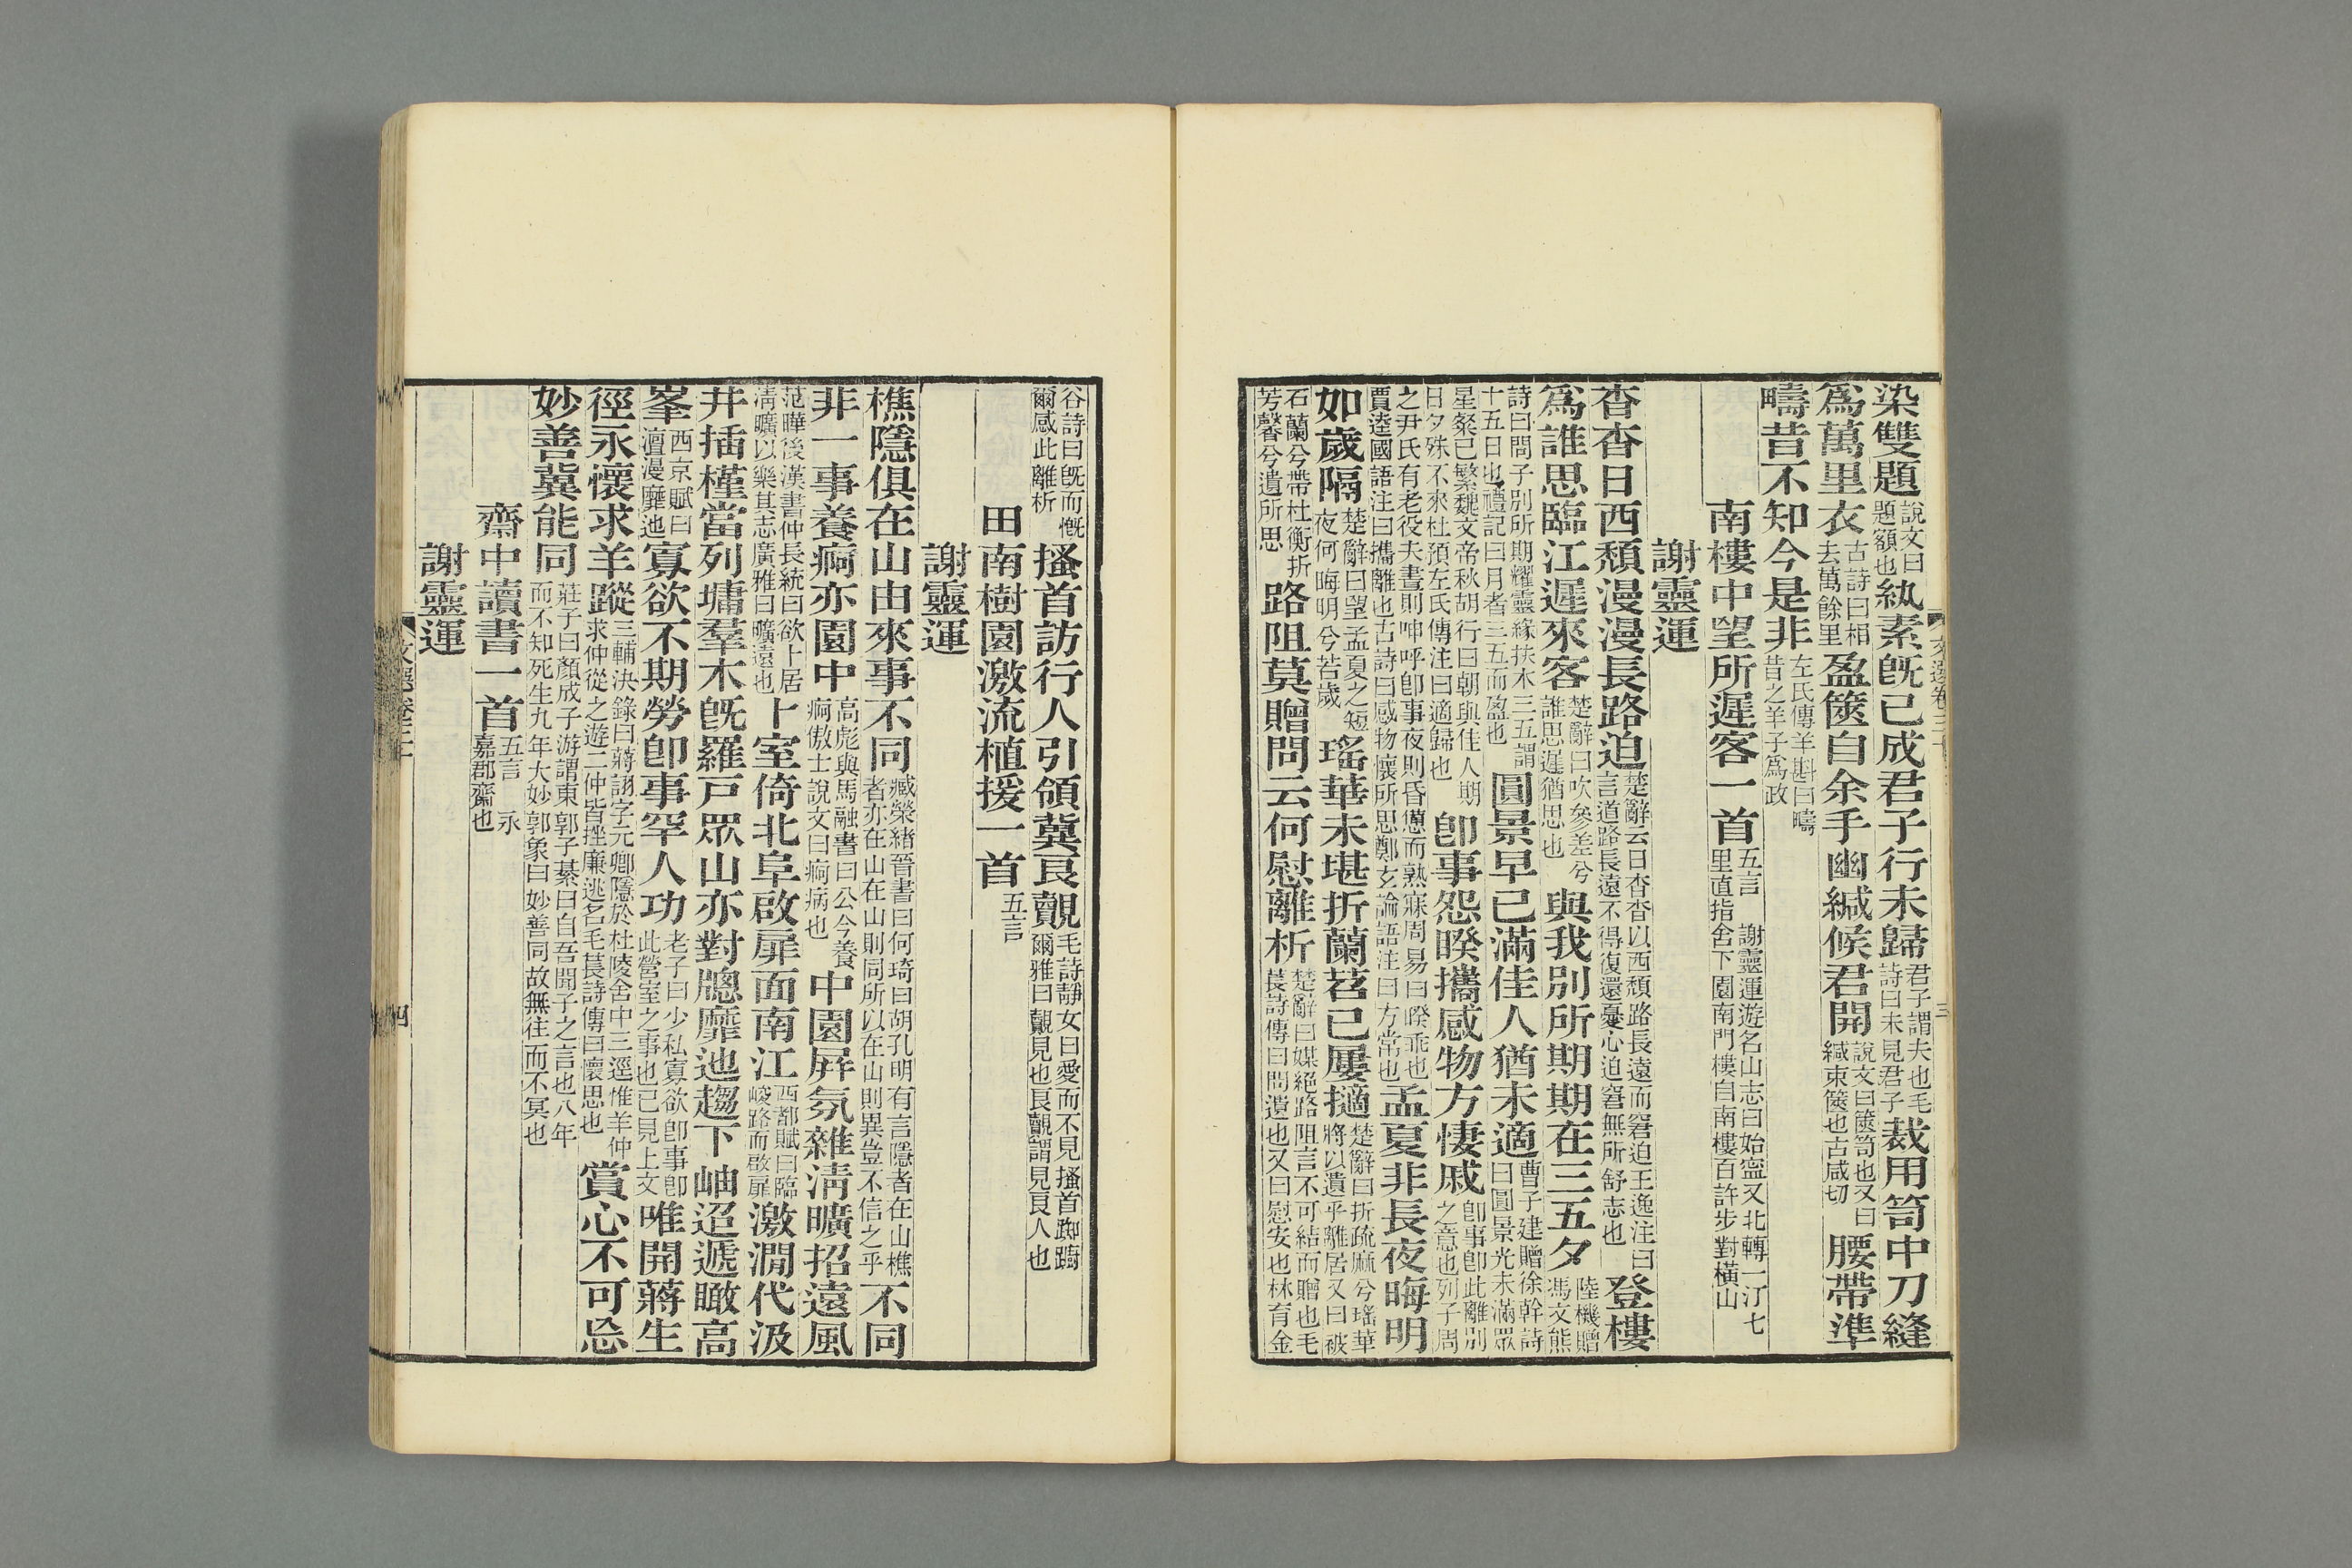 文選卷三十
三
染雙題說文曰題額也紈素旣已成君子行未歸君子謂夫也毛詩曰未見君子裁用笥中刀縫
爲萬里衣古詩曰相去萬餘里盈篋自余手幽緘候君開說文曰篋笥也又曰緘束篋也古咸切腰帶準
疇昔不知今是非左氏傳羊斟曰疇昔之羊子爲政
南樓中望所遲客一首五言 謝靈運遊名山志曰始寧又北轉一汀七里直指舍下園南門樓自南樓百許步對橫山
謝靈運
杳杳日西頹漫漫長路迫楚辭云日杳杳以西頹路長遠而窘迫王逸注曰言道路長遠不得復還憂心迫窘無所舒志也登樓
爲誰思臨江遲來客楚辭曰吹參差兮誰思遲猶思也與我別所期期在三五夕陸機贈馮文熊
詩曰問子別所期耀靈緣扶木三五謂十五日也禮記曰月者三五而盈也圓景早已滿佳人猶未適曹子建贈徐幹詩曰圓景光未滿眾
星粲已繁魏文帝秋胡行曰朝與佳人期日夕殊不來杜預左氏傳注曰適歸也卽事怨睽攜感物方悽戚卽事卽此離別之意也列子周
之尹氏有老役夫晝則呻呼卽事夜則昏憊而熟寐周易曰睽乖也賈逵國語注曰攜離也古詩曰感物懷所思鄭玄論語注曰方常也孟夏非長夜晦明
如歲隔楚辭曰望孟夏之短夜何晦明兮若歲瑤華未堪折蘭苕已屢擿楚辭曰折疏麻兮瑤華將以遺乎離居又曰被
石蘭兮帶杜衡折芳馨兮遺所思路阻莫贈問云何慰離析楚辭曰媒絕路阻言不可結而贈也毛萇詩傳曰問遺也又曰慰安也林有金
谷詩曰旣而慨爾感此離析搔首訪行人引領冀良覿毛詩靜女曰愛而不見搔首踟躕爾雅曰覿見也良覿謂見良人也
田南樹園激流植援一首五言
謝靈運
樵隱俱在山由來事不同臧榮緒晉書曰何琦曰胡孔明有言隱者在山樵者亦在山在山則同所以在山則異豈不信之乎不同
非一事養痾亦園中高彪與馬融書曰公今養痾傲士說文曰痾病也中園屛氛雜淸曠招遠風
范曄後漢書仲長統曰欲卜居淸曠以樂其志廣雅曰曠遠也卜室倚北阜啟扉面南江西都賦曰臨峻路而啟扉激澗代汲
井插槿當列墉羣木旣羅戸眾山亦對牕靡迆趨下岫迢遞瞰高
峯西京賦曰澶漫靡迆寡欲不期勞卽事罕人功老子曰少私寡欲卽事卽此營室之事也已見上文唯開蔣生
徑永懷求羊蹤三輔決錄曰蔣詡字元卿隱於杜陵舍中三逕惟羊仲求仲從之遊二仲皆挫廉逃名毛萇詩傳曰懷思也賞心不可忘
妙善冀能同莊子曰顏成子游謂東郭子綦曰自吾聞子之言也八年而不知死生九年大妙郭象曰妙善同故無往而不冥也
齋中讀書一首五言 永嘉郡齋也
謝靈運
文選卷三十
四